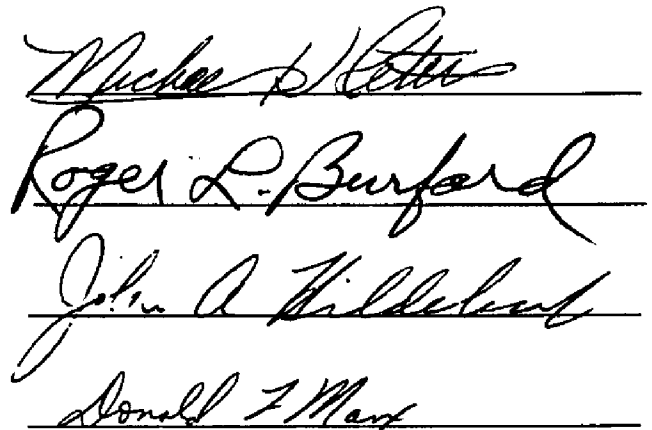 Michael H Peters
Roger L. Burford
John A Hildebrand
Donald F Marx